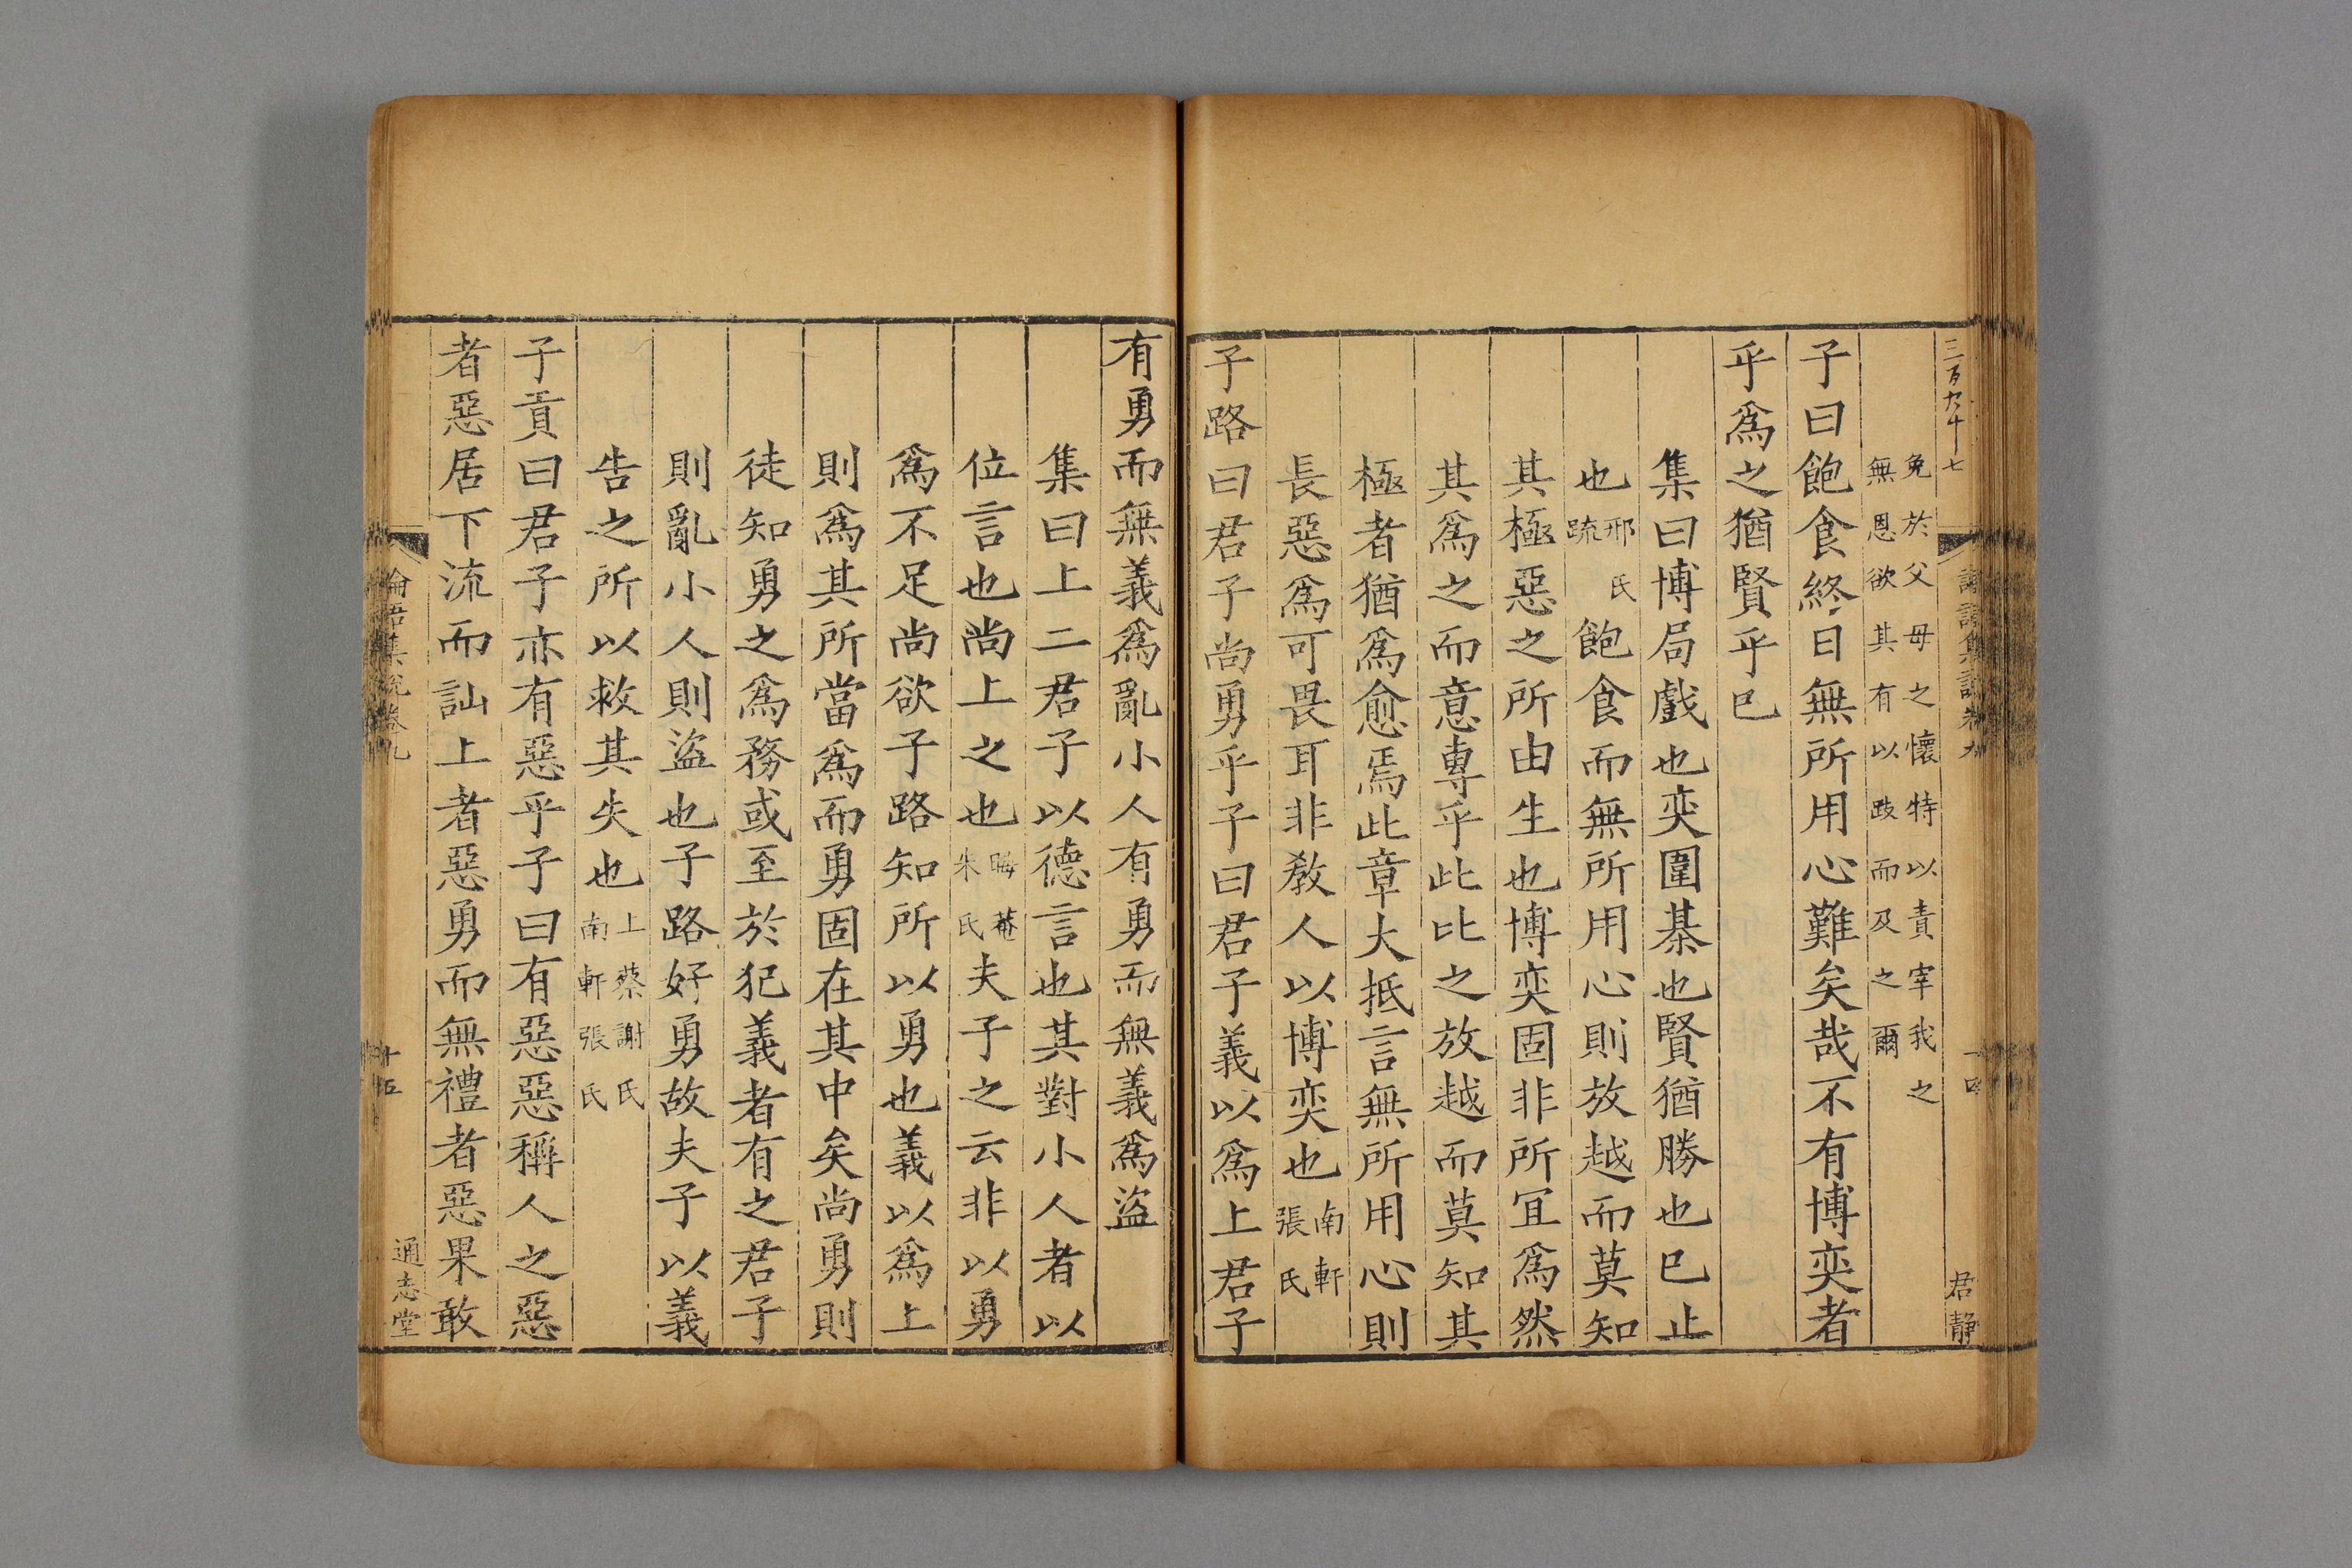 三百九十七
論語集說卷九
十四
君靜
免於父母之懷特以責宰我之
無恩欲其有以跂而及之爾
子曰飽食終日無所用心難矣哉不有博奕者
乎爲之猶賢乎已
集曰博局戲也奕圍棊也賢猶勝也已止
也邢氏疏飽食而無所用心則放越而莫知
其極惡之所由生也博奕固非所宜爲然
其爲之而意專乎此比之放越而莫知其
極者猶爲愈焉此章大抵言無所用心則
長惡爲可畏耳非教人以博奕也南軒張氏
子路曰君子尚勇乎子曰君子義以爲上君子
有勇而無義爲亂小人有勇而無義爲盜
集曰上二君子以德言也其對小人者以
位言也尚上之也晦菴朱氏夫子之云非以勇
爲不足尚欲子路知所以勇也義以爲上
則爲其所當爲而勇固在其中矣尚勇則
徒知勇之爲務或至於犯義者有之君子
則亂小人則盜也子路好勇故夫子以義
告之所以救其失也上蔡謝氏南軒張氏
子貢曰君子亦有惡乎子曰有惡惡稱人之惡
者惡居下流而訕上者惡勇而無禮者惡果敢
論語集說卷九
十五
通志堂